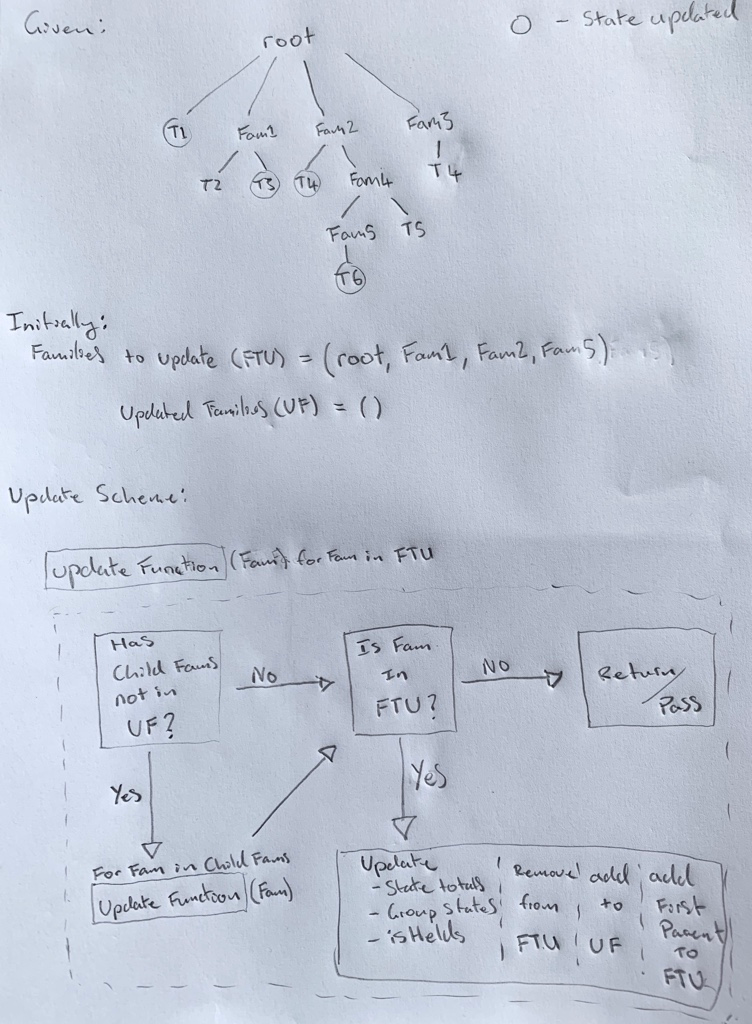 Given:
O - State updated
root
T1 Fam1 Fam2 Fam3
T2 T3 T4 Fam4 T4
Fam5 T5
T6
Initially:
Families to update (FTU) = (root, Fam1, Fam2, Fam5)
Updated Families (UF) = ()
Update Scheme:
Update Function (Fam) for Fam in FTU
Has
Child Fams
not in
UF?
NO
Is Fam
In
FTU?
NO
Return/
Pass
Yes
Yes
For Fam in Child Fams
Update Function (Fam)
Update
- State totals
- Group States
- isHelds
Remove
from
FTU
add
to
UF
add
First
Parent
TO
FTU